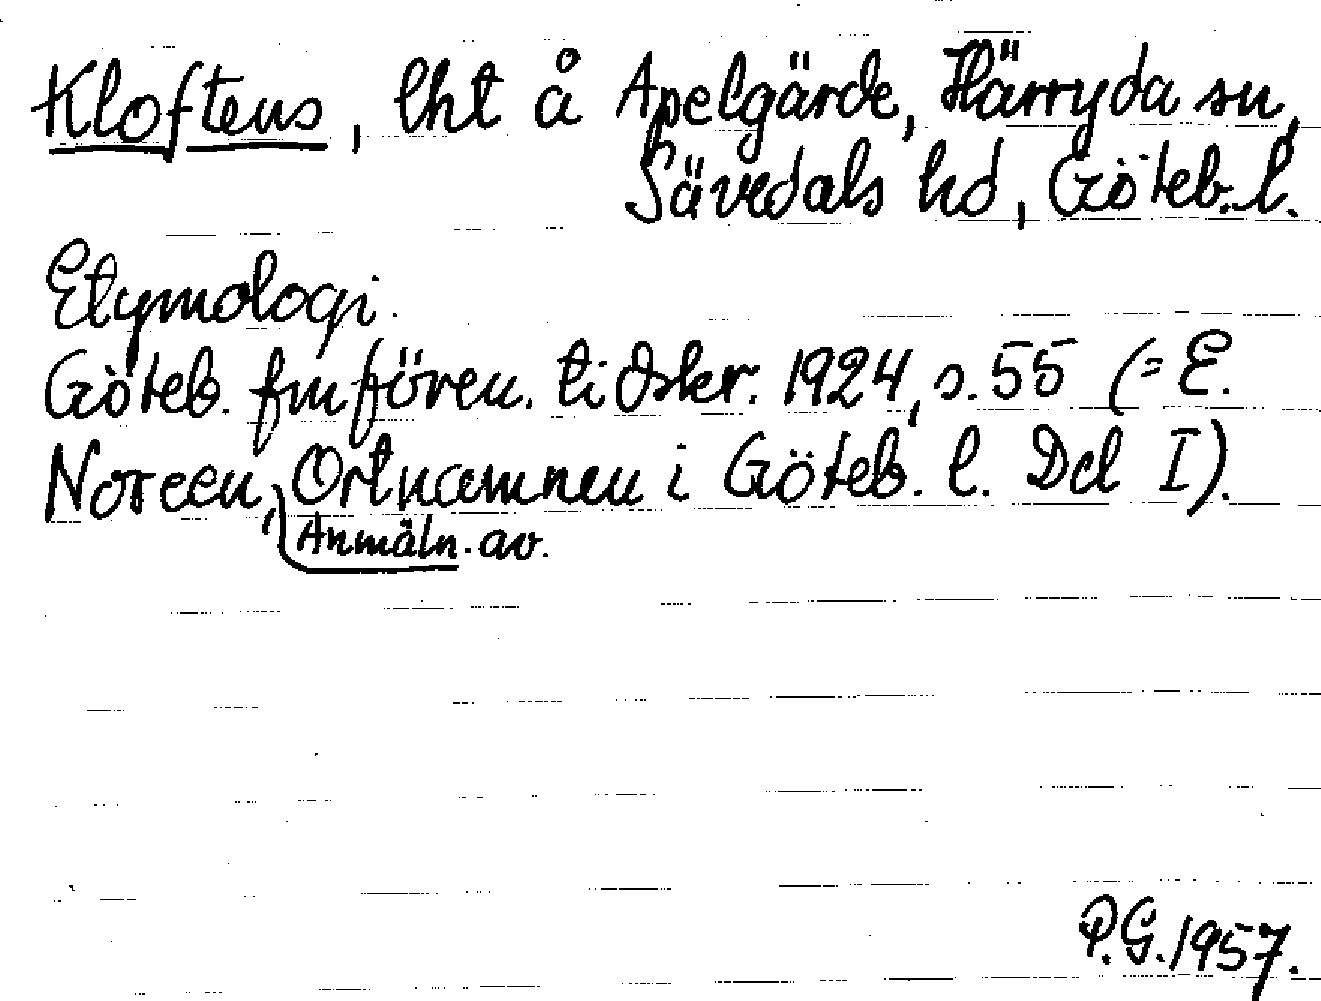 Kloftens, lht å Apelgärde, Härryda sn,
Sävedals hd, Göteb. l.
Etymologi.
Göteb. fmfören. tidskr. 1924, s. 55 (= E.
Noreen, Ortnamnen i Göteb. l. Del I).
Anmäln. av.
P.G. 1957.